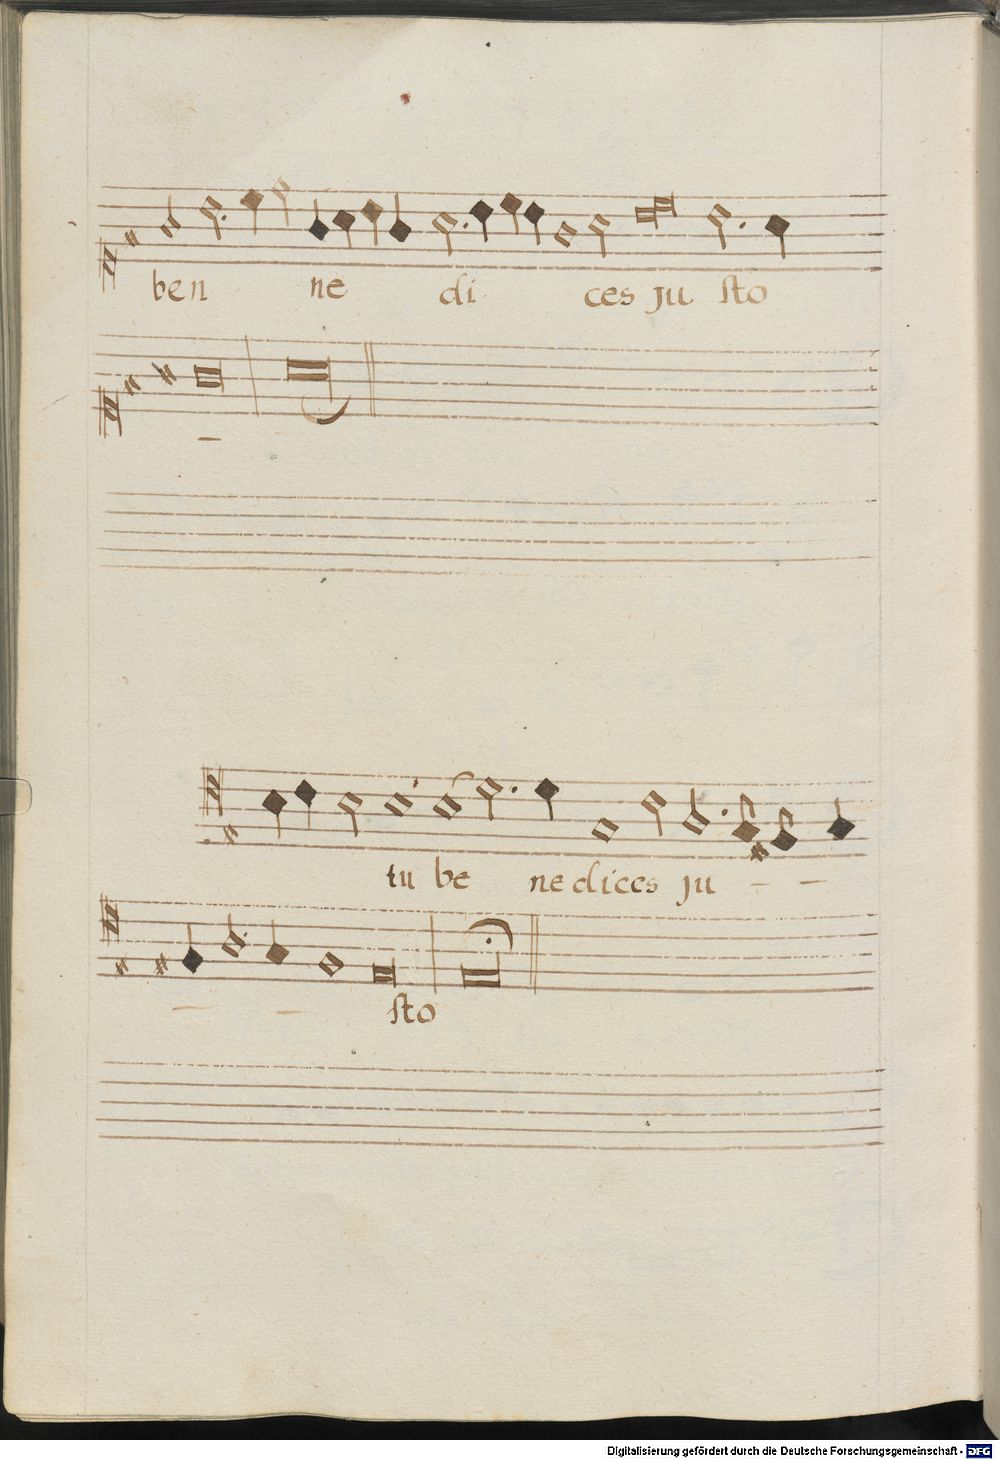 ben ne di ces ju sto
tu be ne dices ju
sto
Digitalisierung gefördert durch die Deutsche Forschungsgemeinschaft - DFG